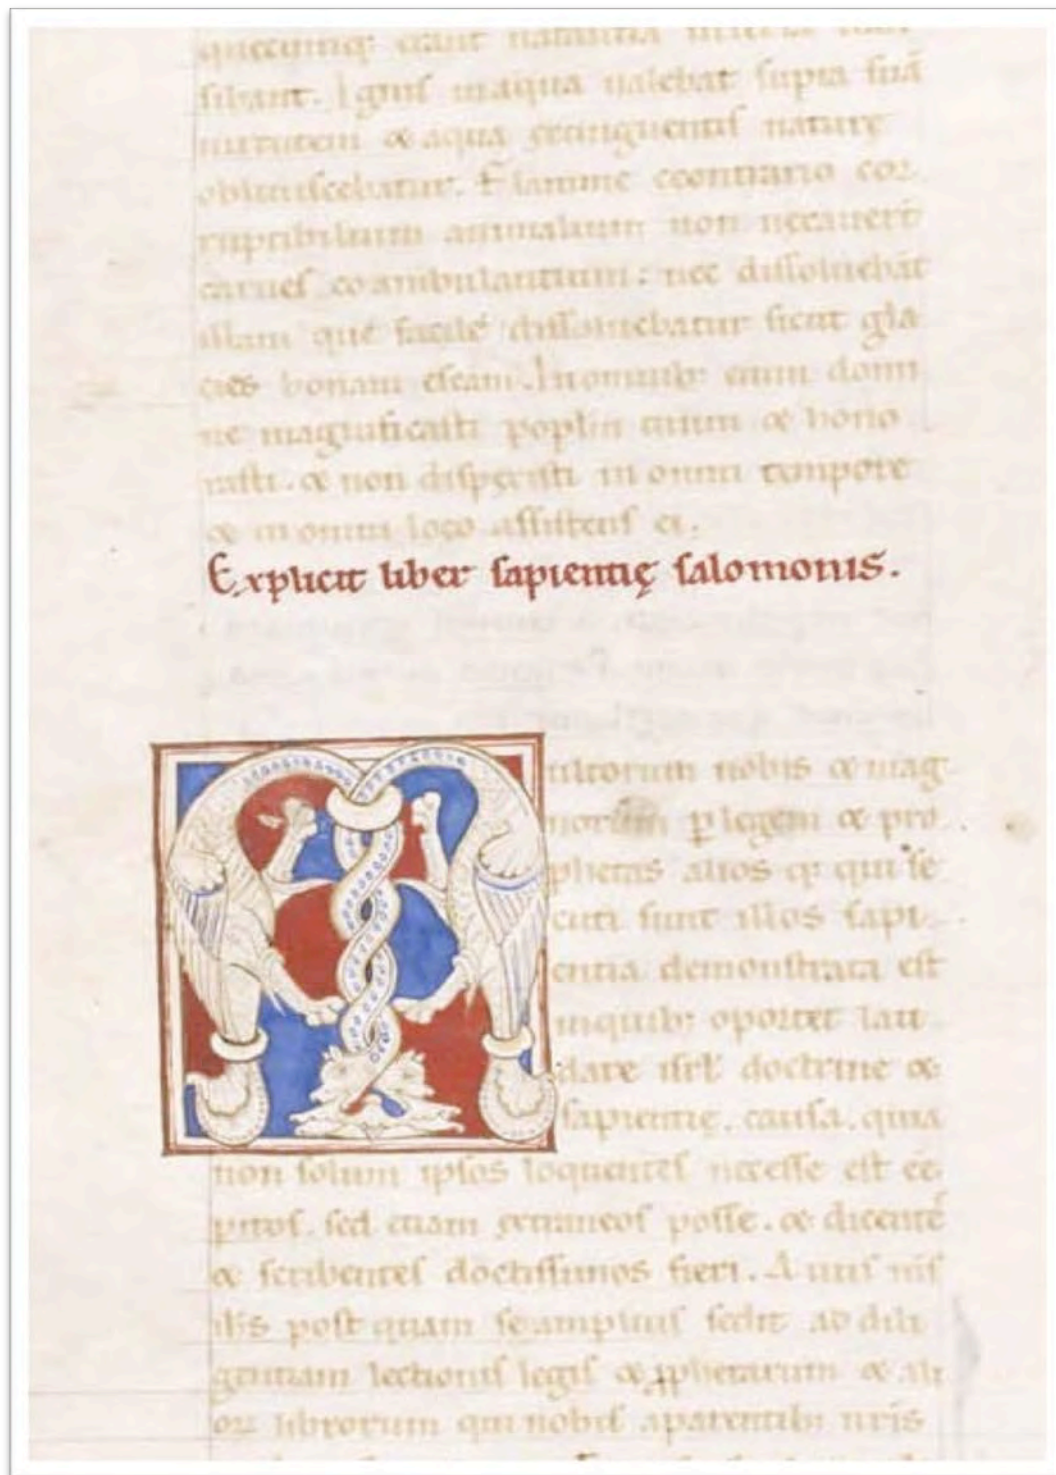 quecumq; erant natantia in terra tran
sibant. Ignis in aqua valebat supra suā
virtutem & aqua extinguentis naturę
obliviscebatur. Flammę econtrario cor
ruptibilium animalium non vexauerū
carnes coambulantium: nec dissoluebāt
illam que facile dissoluebatur sicut gla
cies bonam escam. In omnib; enim domi
ne magnificasti poplm tuum & hono
rasti. & non despexisti in omni tempore
& in omni loco assistens ei.
Explicit liber sapientię salomonis.
Multorum nobis & mag
norum p legem & pro
phetas alios q; qui se
cuti sunt illos sapi
entia demonstrata est
in quib; oportet lau
dare isrl doctrine &
sapientię. causa. quia
non solum ipsos loquentes necesse est eē
pitos. sed etiam extraneos posse. & dicentē
& scribentes doctissimos fieri. Auus ms
ihs post quam se amplius dedit ad dili
gentiam lectionis legis & pphetarum & ali
or librorum qui nobis a parentib; nris